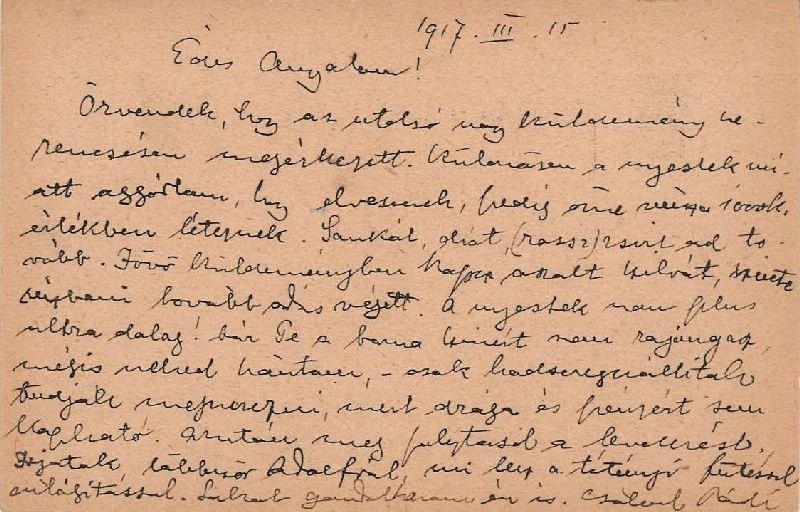 1917. III. 15
Édes Anyalam!
Örvendek, hogy az utolsó nagy küldemény sze-
rencsésen megérkezett. Különösen a nyestek mi-
att aggódtam, hogy elvesznek, pedig
értékben lehetnek. diót, (rossz) zsírt add to-
vább. Jövő küldeményben kapsz aszalt szilvát, szintén
tovább adás végett. A nyestek non plus
ultra dolog! bár Te a barna színért nem rajongasz,
mégis neked szántam, - csak hadseregszállítók
tudják megveszni, mert drága és pénzért sem
kapható. Azután meg folytasd a levelezést.
Írjatok többször Adolfról, mi lesz a tétényi fűtéssel
világítással. Sokat gondolkozom én is. Csókol